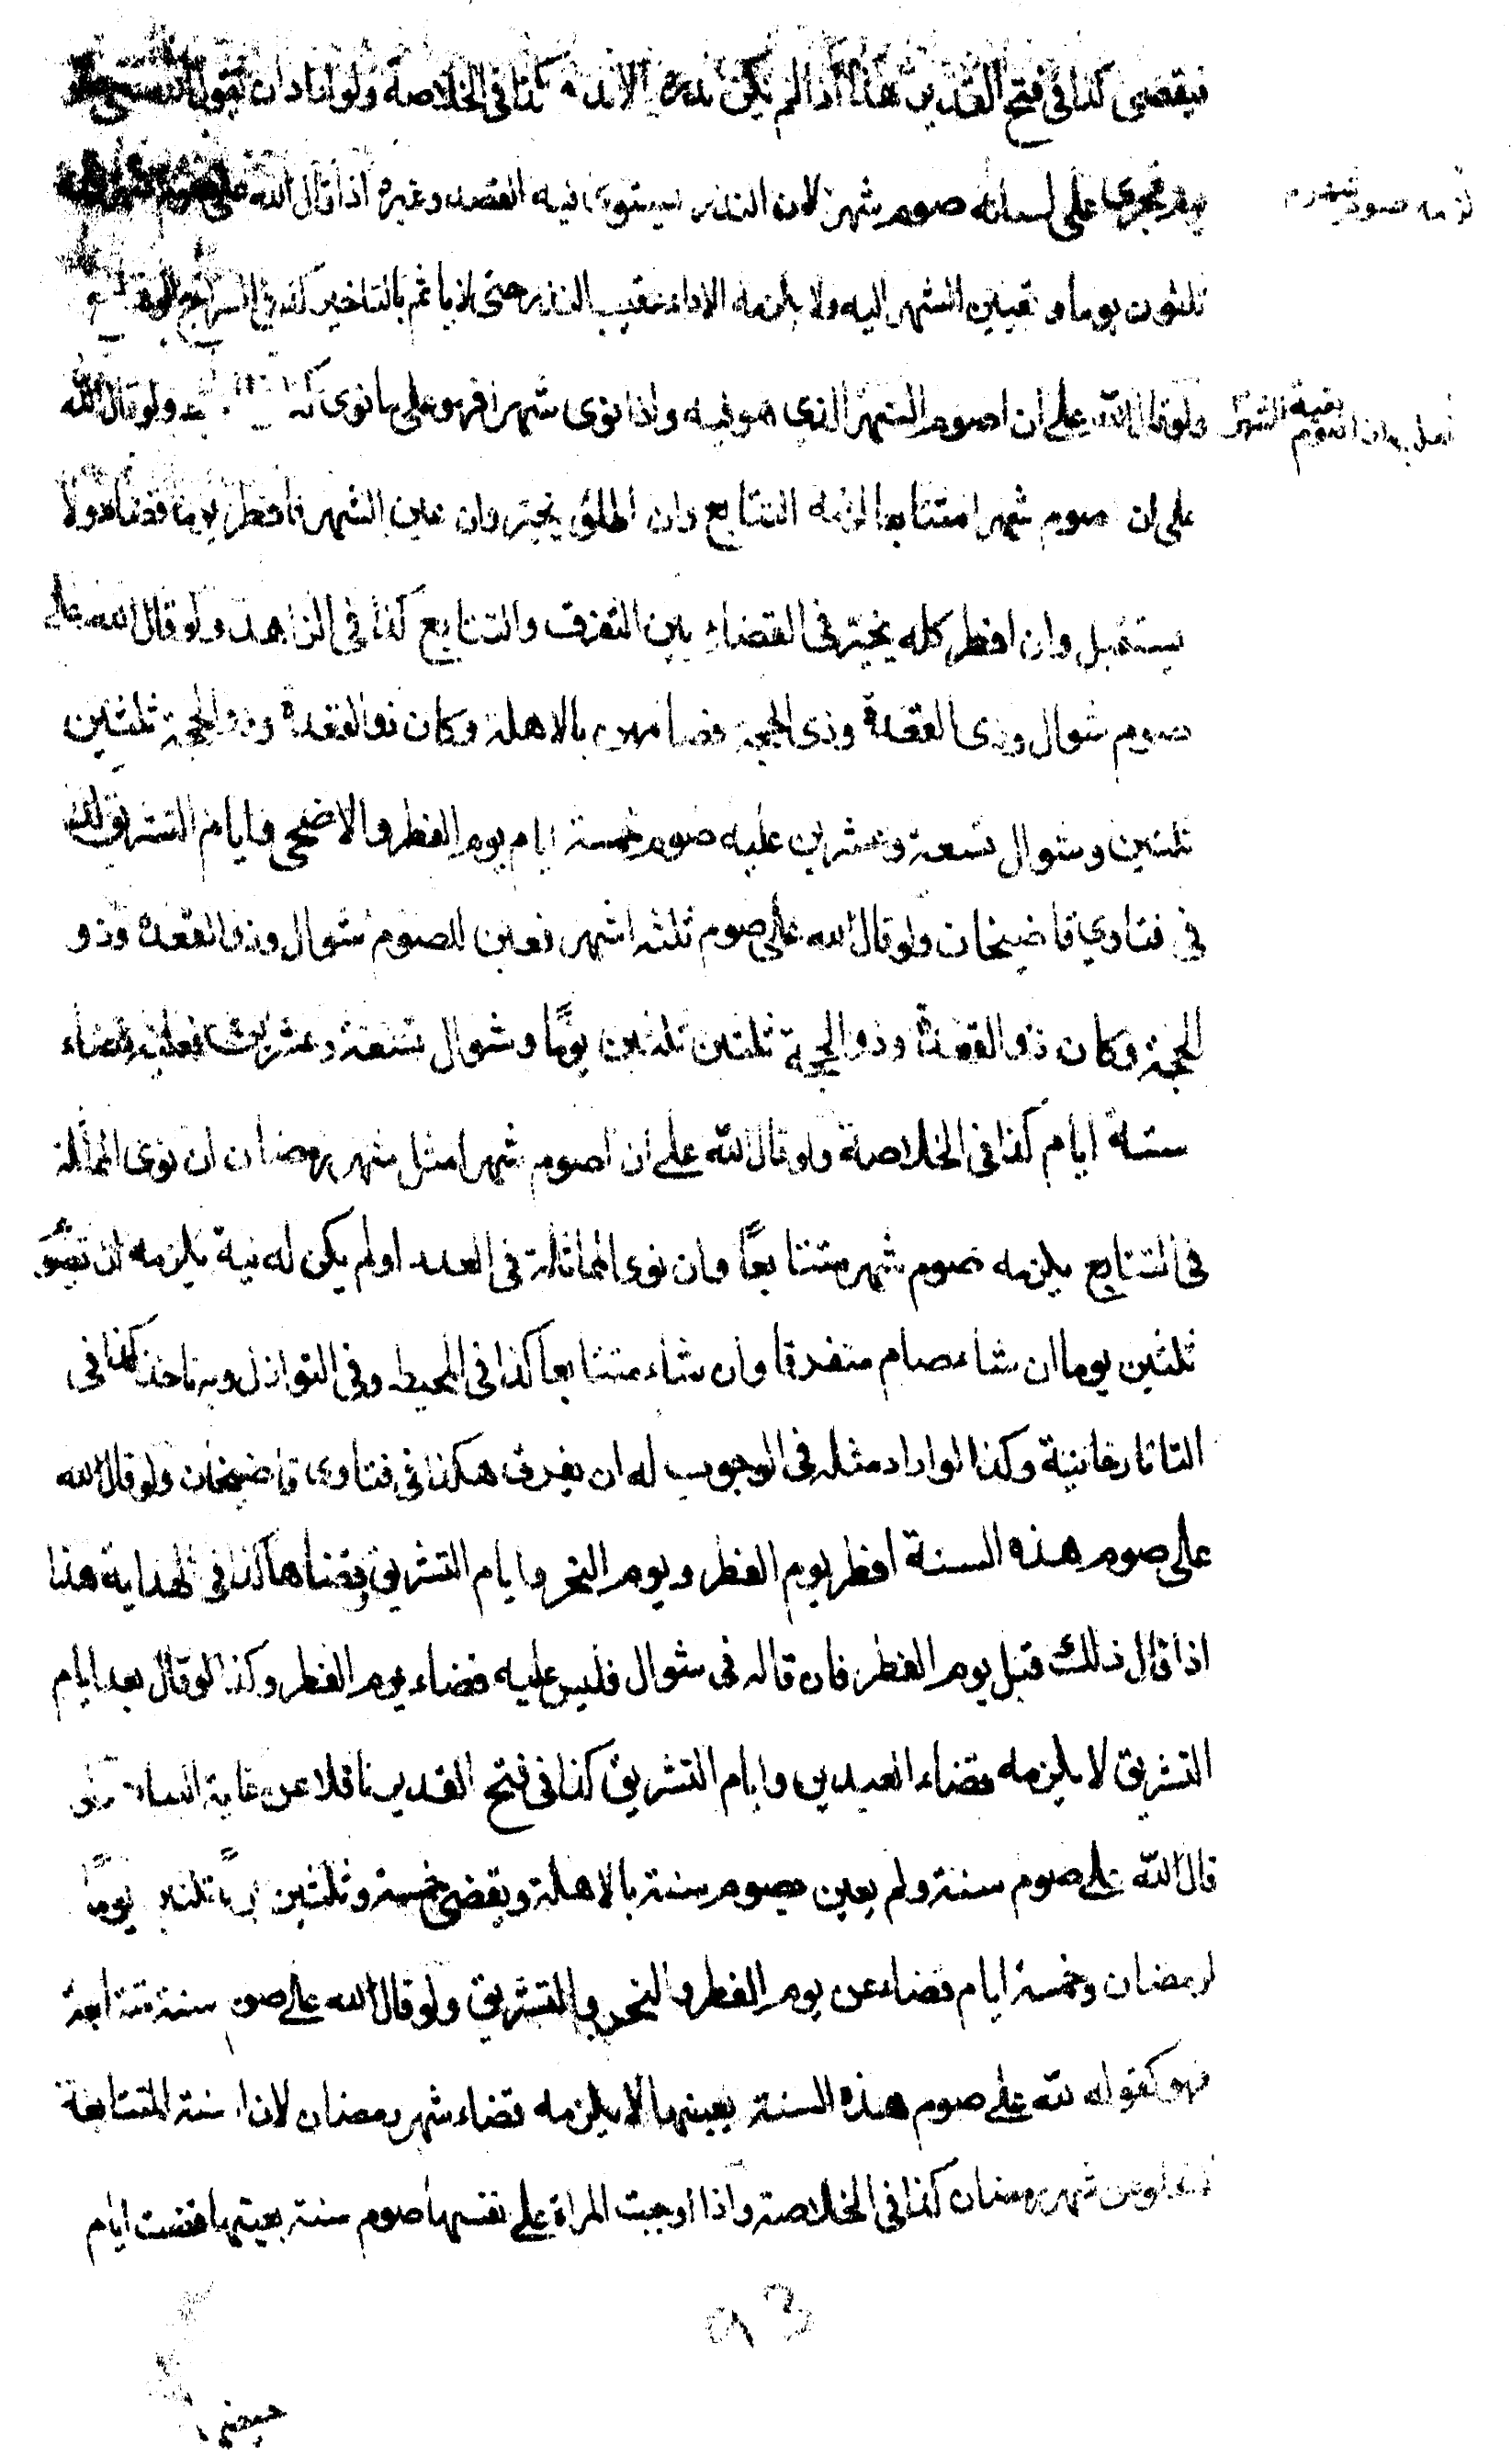 فيقضى كذا فى فتح القدير هذا اذا لم يكن نذره الاندة كذا فى الخلاصة ولو اراد ان يقول
فجرى على لسانه صوم شهر لان النذر يستوى فيه القصد وغيره اذا قال لله على صوم شهر
لزمه صوم شهر
ثلثون يوما وتعيين الشهر اليه ولا يلزمه الاداء عقيب النذر حتى لا ياثم بالتاخير كذا فى السراج الوهاج
ولو قال لله على ان اصوم الشهر الذي هو فيه واذا نوى شهرا فهو على ما نوى ولو قال لله
بقية الشهر
على ان صوم شهرا متتابعا لزمه التتابع وان اطلق يخير وان عين الشهر فافطر يوما قضاه ولا
يستقبل وان افطر كله يخير فى القضاء بين التفرق والتتابع كذا فى الزاهد ولو قال لله على
صوم شوال وذى القعدة وذى الحجة فصامهن بالاهلة وكان ذو القعدة وذو الحجة ثلثين
ثلثين وشوال تسعة وعشرين عليه صوم خمسة ايام يوم الفطر والاضحى وايام التشريق كذا
فى فتاوي قاضيخان ولو قال لله على صوم ثلثه اشهر فعين للصوم شوال وذو القعدة وذو
الحجة وكان ذو القعدة وذو الحجة ثلثين ثلثين يوما وشوال تسعة وعشرين فعليه قضاء
ستة ايام كذا فى الخلاصة ولو قال لله على ان اصوم شهرا مثل شهر رمضان ان نوى المماثلة
فى التتابع يلزمه صوم شهر متتابعًا وان نوى المماثلة فى العدد او لم يكن له نية يلزمه ان تصو
ثلثين يوما ان شاء صام متفرقا وان شاء متتابعا كذا فى المحيط وفى النوازل وبه ناخذ كذا فى
التاتارخانية وكذا لو اراد مثله فى الوجوب له ان يفرق هكذا فى فتاوى قاضيخان ولو قال لله
على صوم هذه السنة افطر يوم الفطر ويوم النحر وايام التشريق وقضاها كذا فى الهداية هذا
اذا قال ذلك قبل يوم الفطر فان قاله فى شوال فليس عليه قضاء يوم الفطر وكذا لو قال بعد ايام
التشريق لا يلزمه قضاء العيدين وايام التشريق كذا فى فتح القدير ناقلا عن غاية البيان ولو
قال لله على صوم سنة ولم يعين يصوم سنة بالاهلة ويقضى خمسة وثلثين يوما ثلثين يوما
لرمضان وخمسة ايام قضاء عن يوم الفطر والنحر والتشريق ولو قال لله على صوم سنة متتابعة
فهو كقوله لله على صوم هذه السنة بعينها لا يلزمه قضاء شهر رمضان لان السنة المتتابعة
شهر رمضان كذا فى الخلاصة واذا اوجبت المراة على نفسها صوم سنة بعينها قضت ايام
٩٣
حيضها